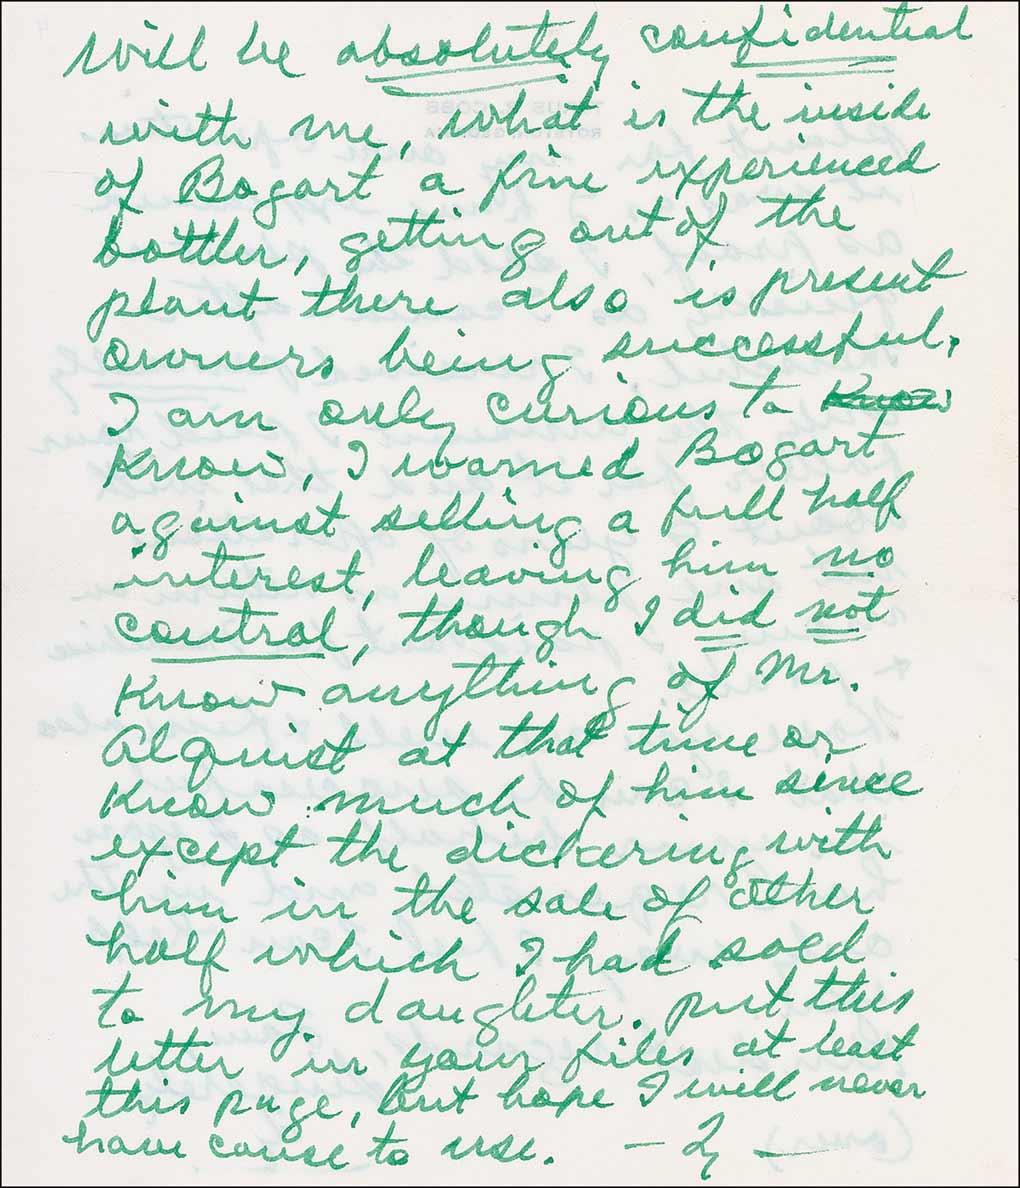 will be absolutely confidential
with me, what is the inside
of Bogart a fine experienced
bottler, getting out of the
plant there also is present
owners being successful.
I am only curious to Know
Know, I warned Bogart
against selling a full half
interest, leaving him no
control, though I did not
Know anything of Mr.
Alquist at that time or
Know much of him since
except the dickering with
him in the sale of other
half which I had sold
to my daughter. put this
letter in your files at least
this page, but hope I will never
have cause to use. — Ty —